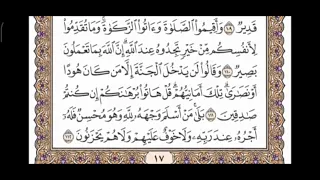 قَدِيرٌ ١٠٩ وَأَقِيمُوا۟ ٱلصَّلَوٰةَ وَءَاتُوا۟ ٱلزَّكَوٰةَ وَمَا تُقَدِّمُوا۟
لِأَنفُسِكُم مِّنْ خَيْرٍ تَجِدُوهُ عِندَ ٱللَّهِ إِنَّ ٱللَّهَ بِمَا تَعْمَلُونَ
بَصِيرٌ ١١٠ وَقَالُوا۟ لَن يَدْخُلَ ٱلْجَنَّةَ إِلَّا مَن كَانَ هُودًا
أَوْ نَصَٰرَىٰ تِلْكَ أَمَانِيُّهُمْ قُلْ هَاتُوا۟ بُرْهَٰنَكُمْ إِن كُنتُمْ
صَٰدِقِينَ ١١١ بَلَىٰ مَنْ أَسْلَمَ وَجْهَهُۥ لِلَّهِ وَهُوَ مُحْسِنٌ فَلَهُۥٓ
أَجْرُهُۥ عِندَ رَبِّهِۦ وَلَا خَوْفٌ عَلَيْهِمْ وَلَا هُمْ يَحْزَنُونَ ١١٢
١٧